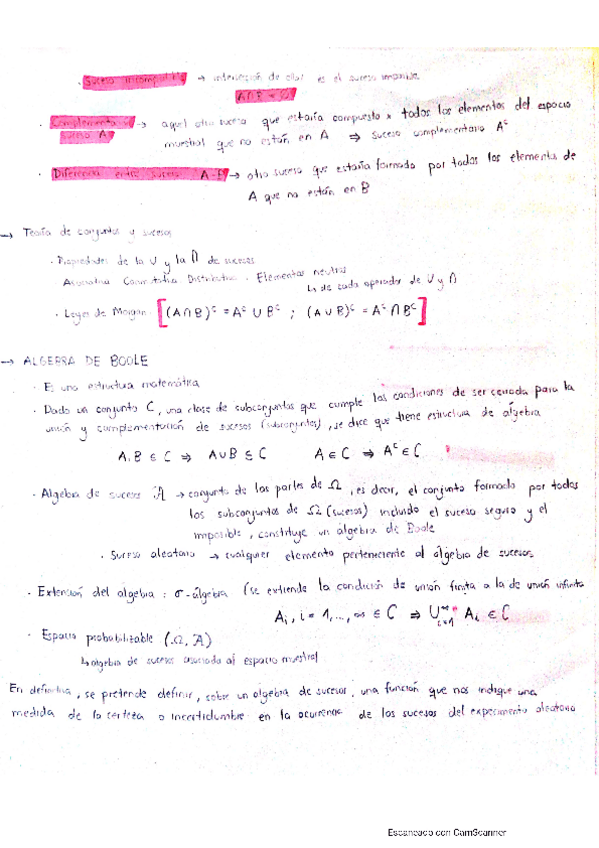 · Suceso incompatible → intersección de ellos es el suceso imposible.
A∩B = ∅
· Complemento → aquel otro suceso que estaría compuesto x todos los elementos del espacio
suceso A muestral que no están en A ⇒ suceso complementario Aᶜ
· Diferencia entre sucesos A-B → otro suceso que estaría formado por todos los elementos de
A que no están en B
→ Teoría de conjuntos y sucesos
· Propiedades de la ∪ y la ∩ de sucesos
Asociativa Conmutativa Distributiva · Elementos neutros
↳ de cada operador de ∪ y ∩
· Leyes de Morgan [(A∩B)ᶜ = Aᶜ ∪ Bᶜ ; (A∪B)ᶜ = Aᶜ ∩ Bᶜ]
→ ALGEBRA DE BOOLE
· Es una estructura matemática
· Dado un conjunto C, una clase de subconjuntos que cumple las condiciones de ser cerrada para la
unión y complementación de sucesos (subconjuntos), se dice que tiene estructura de álgebra
A.B ∈ C ⇒ A∪B ⊆ C A ∈ C ⇒ Aᶜ ∈ C
· Algebra de sucesos A → conjunto de las partes de Ω, es decir, el conjunto formado por todos
los subconjuntos de Ω (sucesos) incluido el suceso seguro y el
imposible, constituye un álgebra de Boole
· Suceso aleatorio → cualquier elemento perteneciente al álgebra de sucesos
· Extensión del algebra : σ-álgebra (se extiende la condición de unión finita a la de unión infinita
Aᵢ, i = 1, ..., ∞ ∈ C ⇒ ∪ᵢ₌₁^∞ Aᵢ ∈ C
· Espacio probabilizable (Ω, A)
↳ algebra de sucesos asociada al espacio muestral
En definitiva, se pretende definir, sobre un algebra de sucesos, una función que nos indique una
medida de la certeza o incertidumbre en la ocurrencia de los sucesos del experimento aleatorio
Escaneado con CamScanner